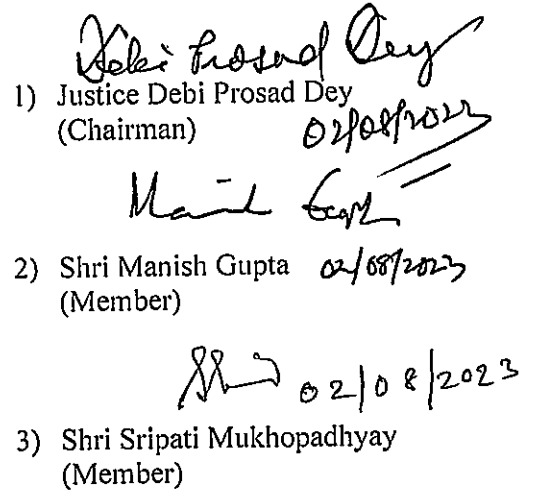 Debi Prosad Dey
1) Justice Debi Prosad Dey
(Chairman)
02/08/2023
Manish Gupta
2) Shri Manish Gupta 02/08/2023
(Member)
02/08/2023
3) Shri Sripati Mukhopadhyay
(Member)